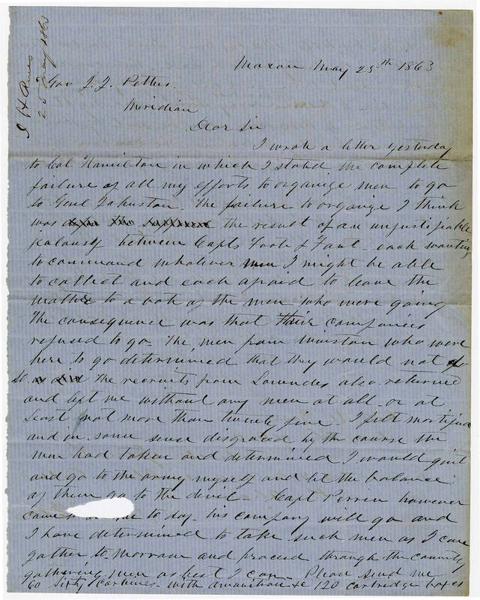 Macon May 25th 1863
Gov J. J. Pettus
Meridian
Dear Sir
I wrote a letter yesterday
to Col Hamilton in which I stated the complete
failure of all my efforts to organize men to go
to Genl Johnston. The failure to organize I think
was the result of an unjustifiable
jealousy between Capts & Fant. each wanting
to command whatever men I might be able
to collect and each afraid to leave the
matter to a vote of the men who were going
The consequence was that their companies
refused to go. The men from Winston who were
here to go determined that they would not do
so the recruits from Lowndes also returned
and left me without any men at all or at
least not more than twenty five. I felt mortified
and in some sense disgraced by the course the
men had taken and determined I would quit
and go to the army myself and let the balance
of them go to the devil - Capt Perrin however
came me to day. his company will go and
I have determined to take such men as I can
gather to Morrow and proceed through the country
gathering men as best I can. Please send me
60 Sixty carbines with amunition &c 120 cartridge boxes
25 May 1863